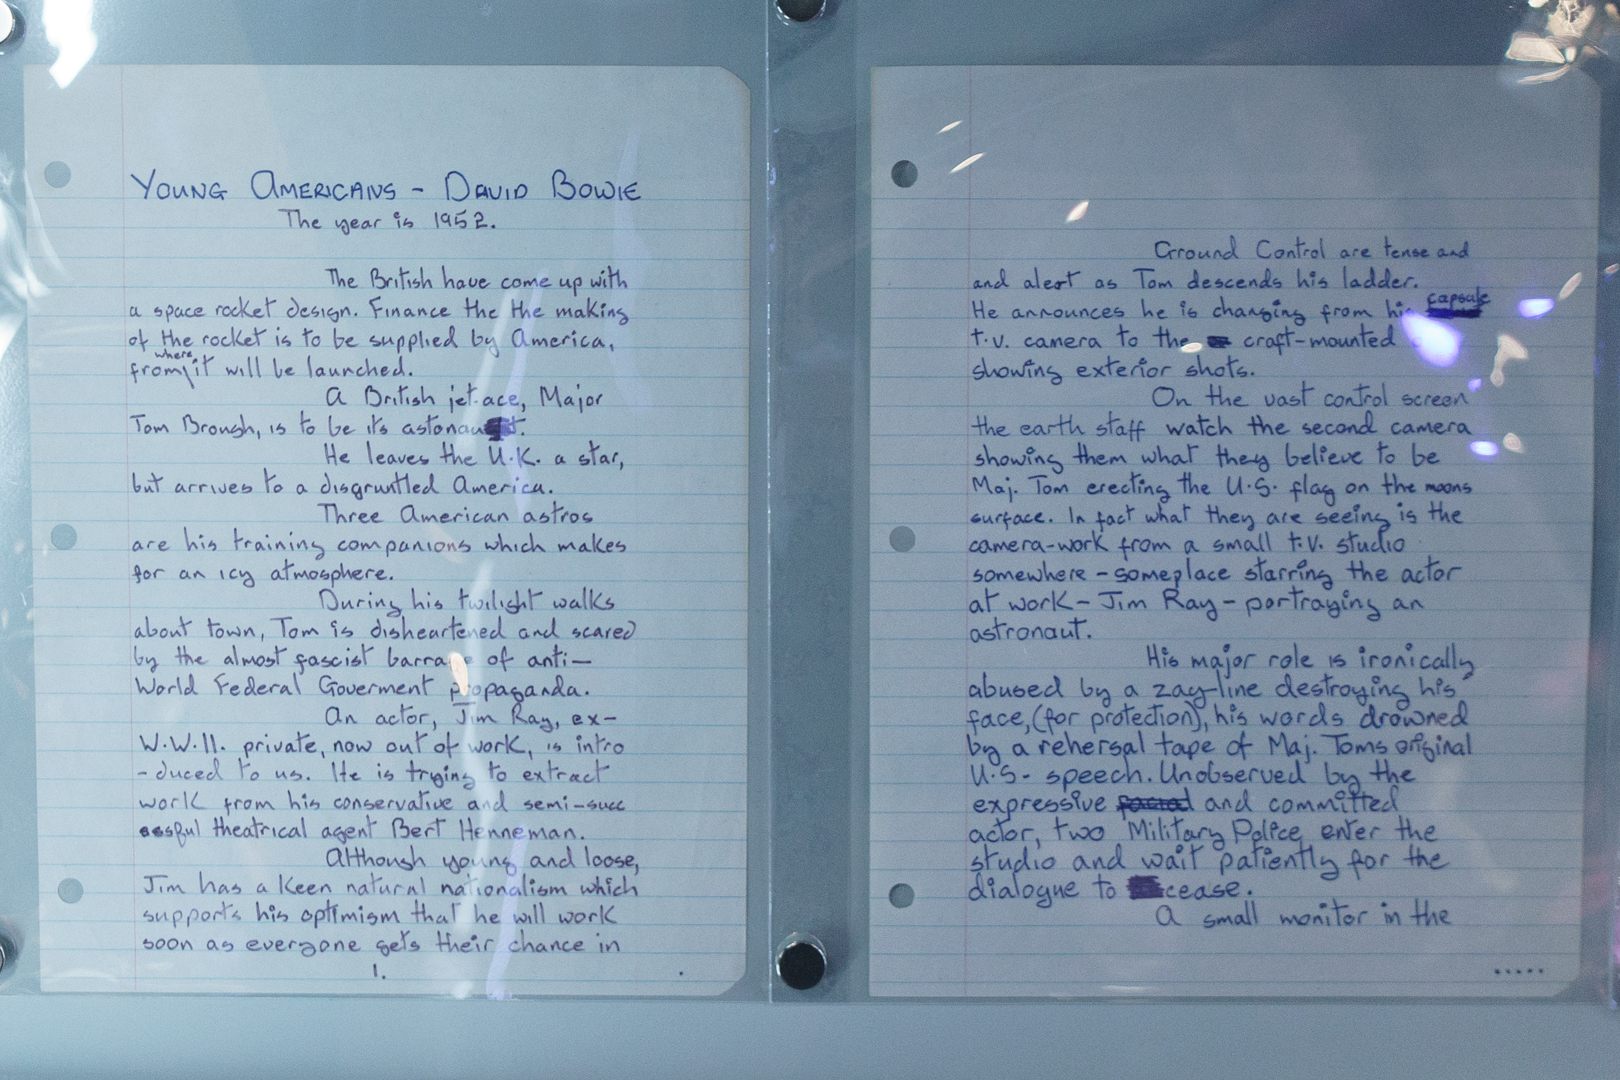 YOUNG AMERICANS - DAVID BOWIE
The year is 1952.
The British have come up with
a space rocket design. Finance the the making
of the rocket is to be supplied by America,
from where it will be launched.
A British jet-ace, Major
Tom Brough, is to be its astonaut.
He leaves the U.K. a star,
but arrives to a disgruntled America.
Three American astros
are his training companions which makes
for an icy atmosphere.
During his twilight walks
about town, Tom is disheartened and scared
by the almost fascist barrage of anti-
World Federal Goverment propaganda.
An actor, Jim Ray, ex-
W.W.II. private, now out of work, is intro
-duced to us. He is trying to extract
work from his conservative and semi-succ
essful theatrical agent Bert Henneman.
Although young and loose,
Jim has a keen natural nationalism which
supports his optimism that he will work
soon as everyone gets their chance in
1.
.
Ground Control are tense and
and alert as Tom descends his ladder.
He announces he is changing from his capsule
t.v. camera to the craft-mounted
showing exterior shots.
On the vast control screen
the earth staff watch the second camera
showing them what they believe to be
Maj. Tom erecting the U.S. flag on the moons
surface. In fact what they are seeing is the
camera-work from a small t.v. studio
somewhere - someplace starring the actor
at work - Jim Ray - portraying an
astronaut.
His major role is ironically
abused by a zag-line destroying his
face, (for protection), his words drowned
by a rehersal tape of Maj. Toms original
U.S. speech. Unobserved by the
expressive facial and committed
actor, two Military Police enter the
studio and wait patiently for the
dialogue to cease.
A small monitor in the
.....